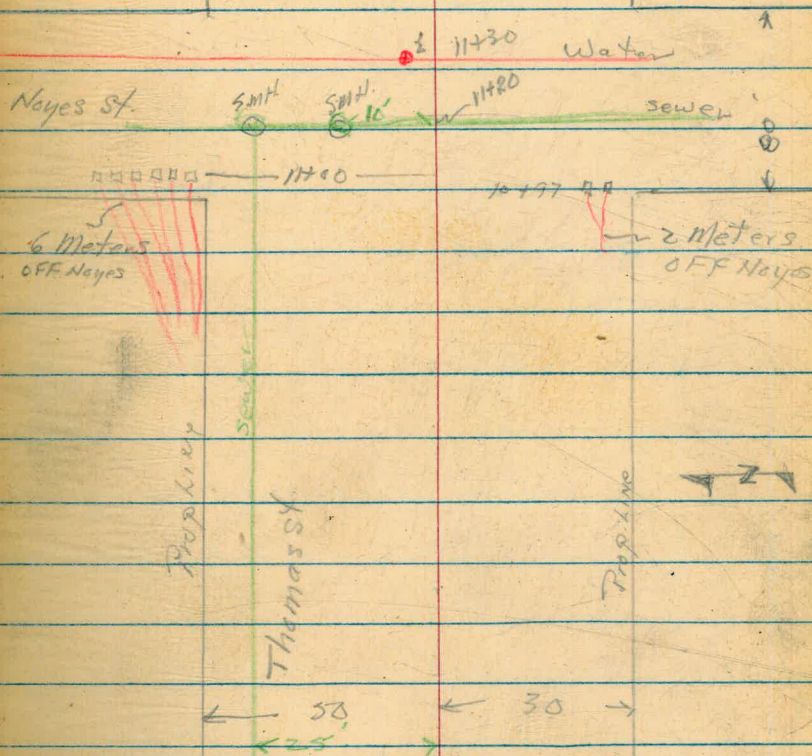 11+30 Water
Noyes St. S.M.H. S.M.H. 10' 11+20 sewer 80'
11+00 10+97
6 Meters
OFF Noyes
2 Meters
OFF Noyes
sewer
Prop Line
Thomas St.
Prop Line
N
50 30
25'